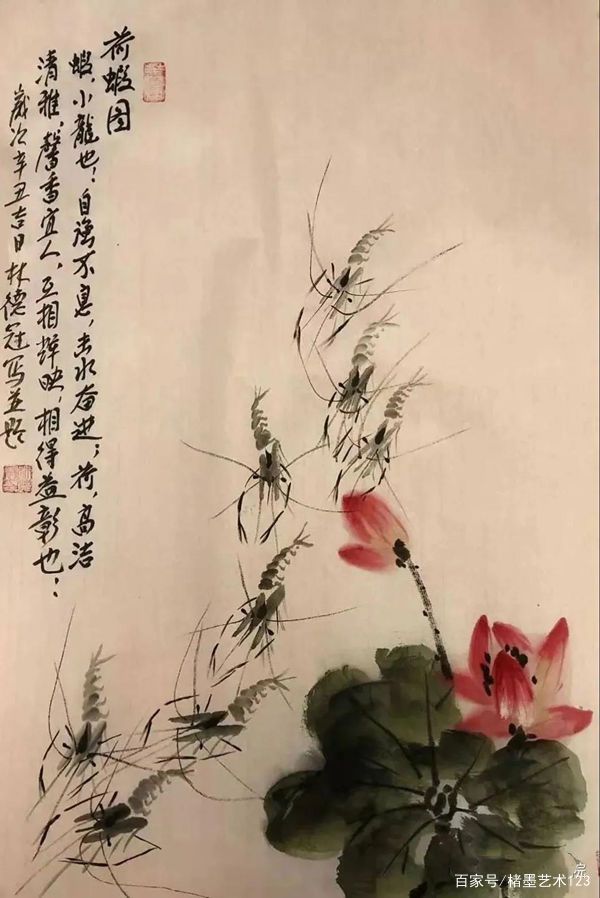 荷蝦图
蝦，小龍也：自强不息，击水奋进；荷，高洁
清雅，馨香宜人，互相辉映，相得益彰也：
歲次辛丑吉日林德冠写並题
百家号/楮墨艺术123